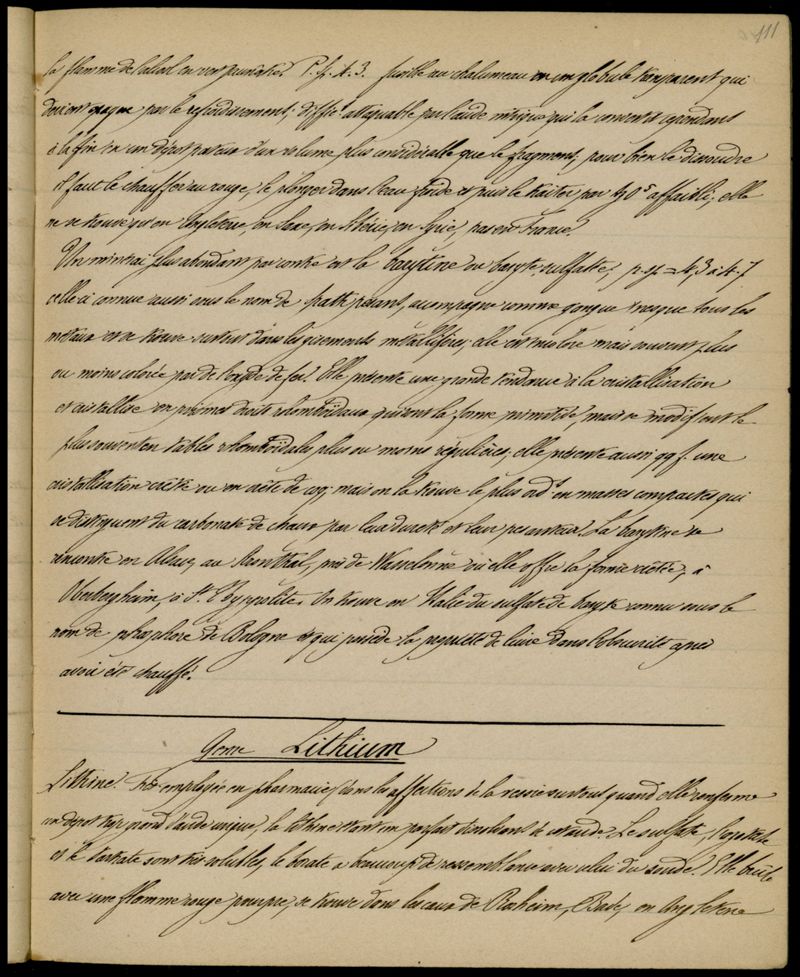 111
la flamme de l'alcool en vert jaunâtre. P. sp. 4.3. fusible au chalumeau en un globule transparent qui
devient opaque par le refroidissement; diff.t attaquable par l'acide nitrique qui la convertit cependant
à la fin en un dépôt pateux d'un volume plus considérable que le fragment; pour bien le dissoudre
il faut le chauffer au rouge, le plonger dans l'eau froide et puis le traiter par affaibli; elle
ne se trouve qu'en Angleterre, en Saxe, en Sibérie, en Syrie, pas en France.
Un minérai plus abondant par contre est la barytine ou baryte sulfatée, p. sp. = 4,3 à 4.7
celle-ci connue aussi sous le nom de spath pesant, accompagne comme gangue presque tous les
métaux et se trouve surtout dans les gisements métallifères; elle est incolore mais souvent plus
ou moins colorée par de l'oxyde de fer. Elle présente une grande tendance à la cristallisation
et cristallise en prismes droits rhomboïdaux qui sont la forme primitive, mais se modifient le
plus souvent en tables rhomboïdales plus ou moins régulières; elle présente aussi qqf. une
cristallisation crêtée ou en crête de coq; mais on la trouve le plus ord.t en masses compactes qui
se distinguent du carbonate de chaux par leur dureté et leur pesanteur. La barytine se
rencontre en Alsace, au Kronthal, près de Wasselonne où elle offre la forme crêtée, à
Oberbergheim, à St. Hyppolite. On trouve en Italie du sulfate de baryte connu sous le
nom de phosphore de Bologne et qui possède la propriété de luire dans l'obscurité après
avoir été chauffé.
Genre Lithium
Lithine. Très employée en pharmacie dans les affections de la vessie surtout quand elle renferme
un dépôt trop grand d'acide urique, la lithine étant un parfait dissolvant de ce Le sulfate, l'azotate
et le tartrate sont très solubles, le borate a beaucoup de ressemblance avec celui de soude. Elle brûle
avec une flamme rouge pourpre, se trouve dans les eaux de Rosheim, Bade, en Angleterre